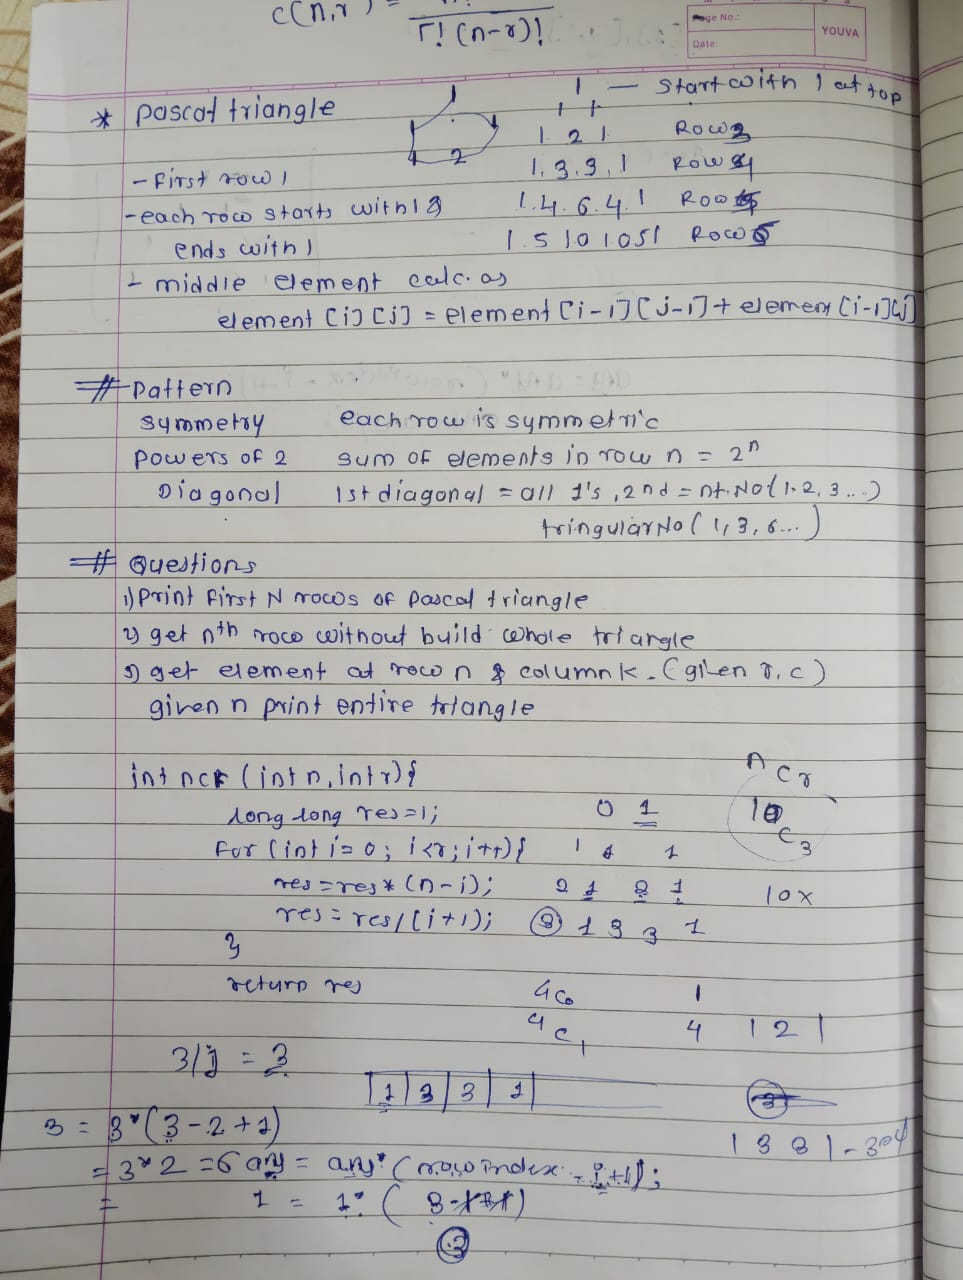 C(n,r) =
r! (n-r)!
Page No.:
Date:
YOUVA
* pascal triangle
1
2
1 — start with 1 at top
1 1
1 2 1 Row 3
1, 3, 3, 1 Row 4
- First row 1
1. 4. 6. 4. 1 Row 5
- each row starts with 1 &
ends with 1
1. 5 10 10 5 1 Row 6
- middle element calc. as
element [i] [j] = element [i-1] [j-1] + element [i-1][j]
# Pattern
symmetry each row is symmetric
Powers of 2 sum of elements in row n = 2ⁿ
Diagonal 1st diagonal = all 1's, 2nd = nt. No (1, 2, 3...)
tringular No (1, 3, 6...)
# Questions
1) Print first N rows of Pascal triangle
2) get nth row without build whole triangle
3) get element at row n & column k. (given r, c)
given n print entire triangle
int ncr (int n, int r) {
n C r
long long res = 1;
0 1
10 C 3
for (int i = 0; i < r; i++) {
1 1 1
res = res * (n-i);
2 1 2 1
10 x
res = res / (i+1);
3 1 3 3 1
}
return res
4C0 1
4C1 4 1 2 1
3/1 = 3
1 3 3 1
3
3 = 3 * (3 - 2 + 1)
1 3 3 1 - 3
= 3 * 2 = 6 any = any * (row index - i + 1);
= 1 = 1 * ( 3
3